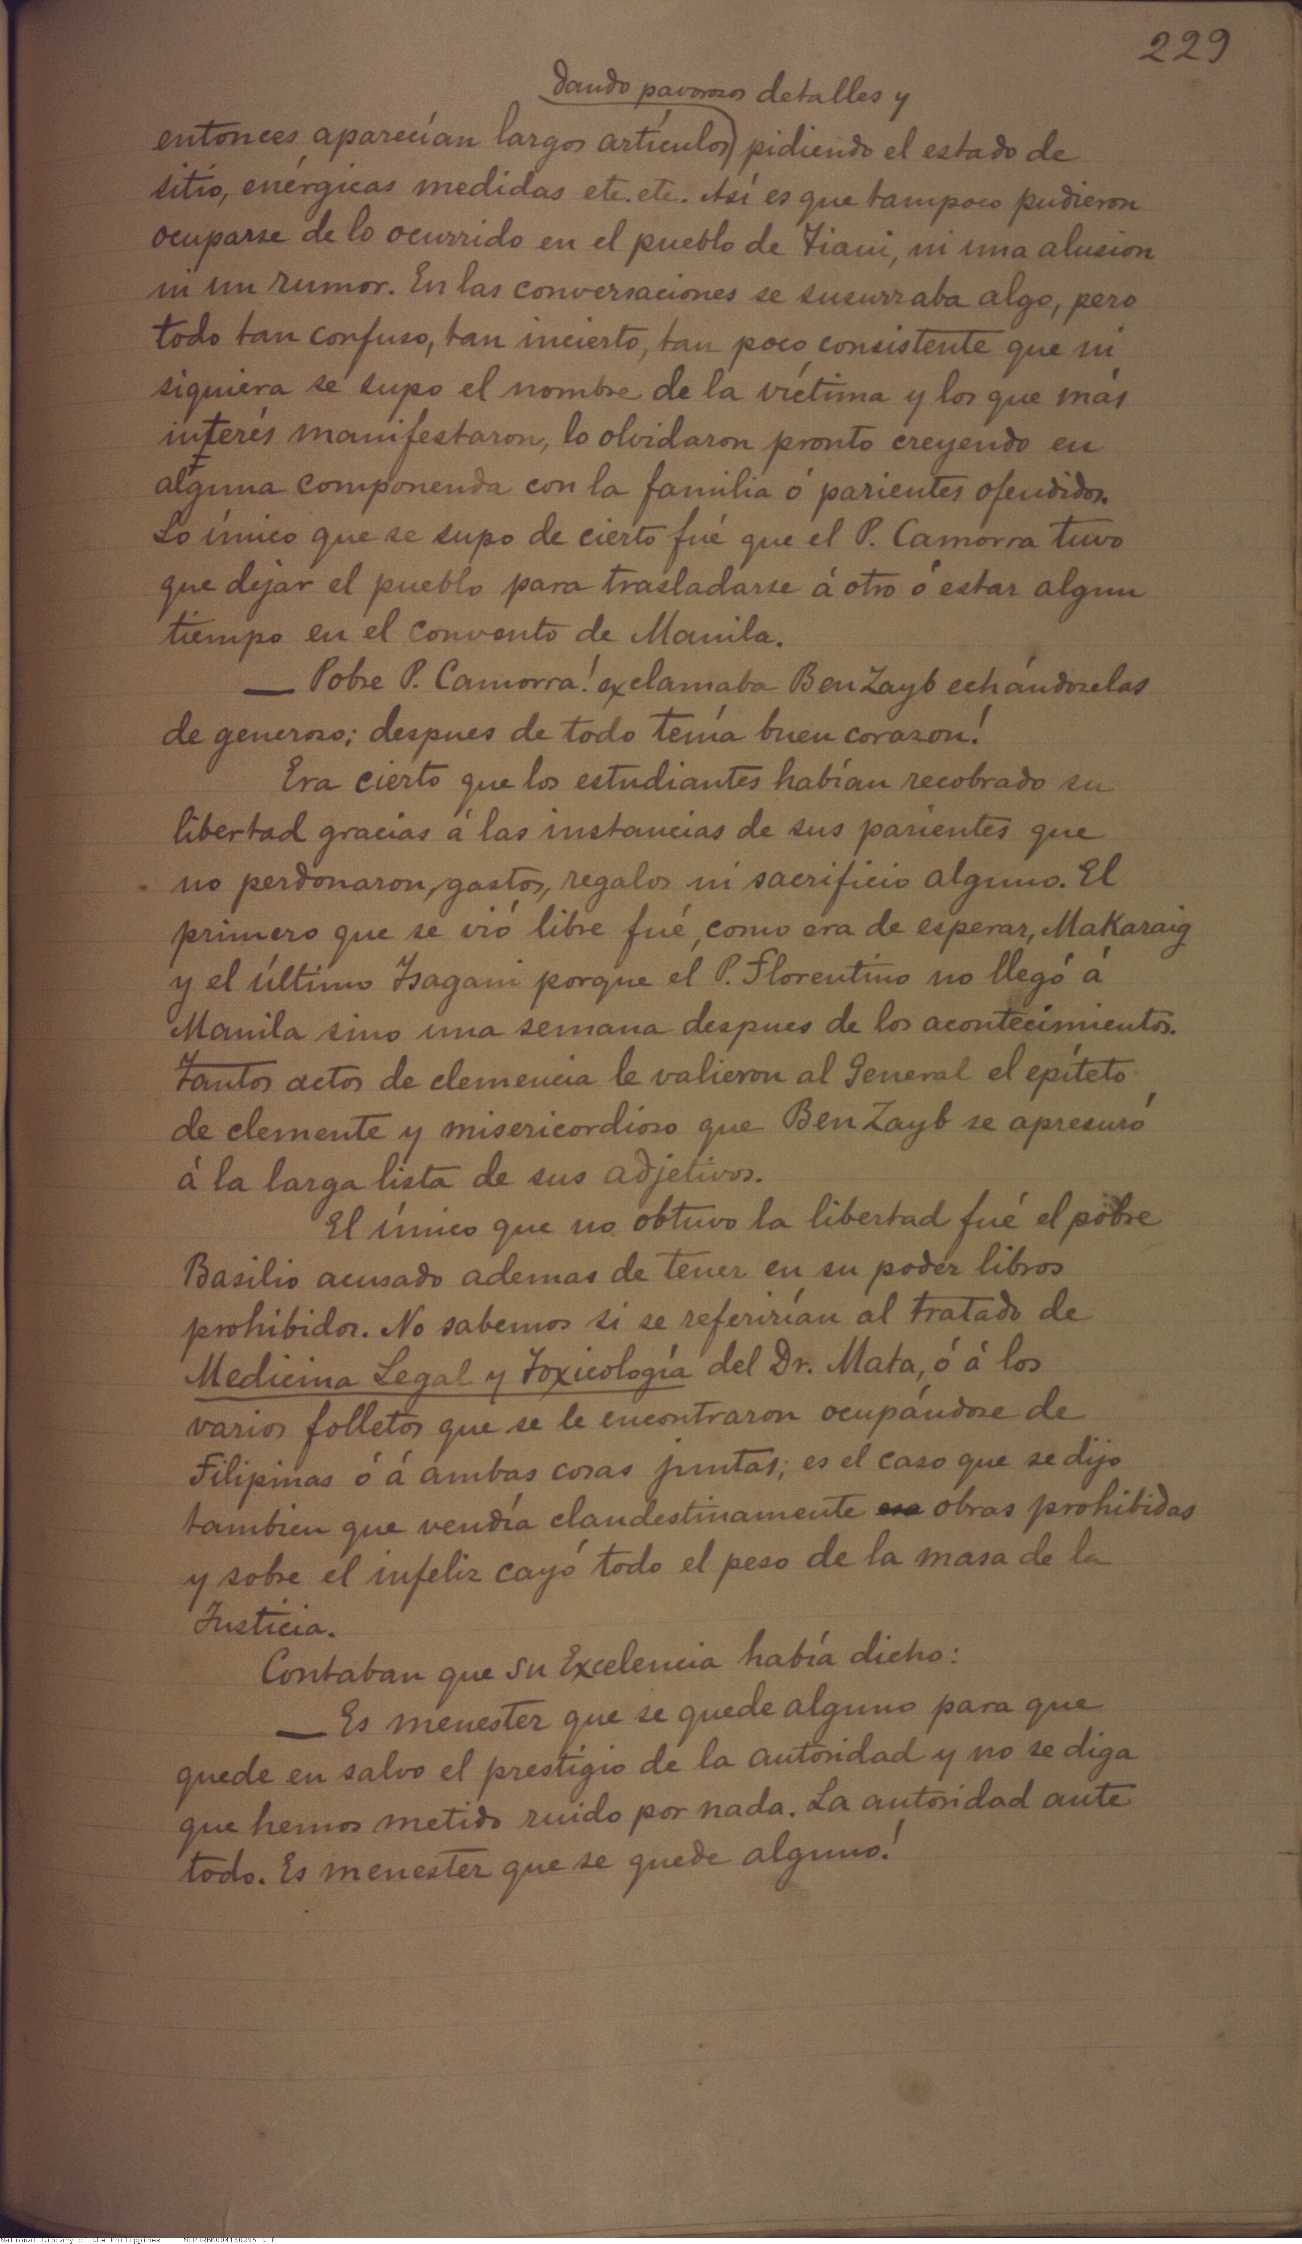 229
dando pavorosos detalles y
entonces aparecían largos artículos pidiendo el estado de
sitio, enérgicas medidas etc. etc. Así es que tampoco pudieron
ocuparse de lo ocurrido en el pueblo de Tiani, ni una alusion
ni un rumor. En las conversaciones se susurraba algo, pero
todo tan confuso, tan incierto, tan poco consistente que ni
siquiera se supo el nombre de la víctima y los que más
interés manifestaron, lo olvidaron pronto creyendo en
alguna componenda con la familia ó parientes ofendidos.
Lo único que se supo de cierto fué que el P. Camorra tuvo
que dejar el pueblo para trasladarse á otro ó estar algun
tiempo en el convento de Manila.
— Pobre P. Camorra! exclamaba Ben Zayb echándoselas
de generoso; despues de todo tenía buen corazon!
Era cierto que los estudiantes habían recobrado su
libertad gracias á las instancias de sus parientes que
no perdonaron, gastos, regalos ni sacrificio alguno. El
primero que se vió libre fué, como era de esperar, Makaraig
y el último Isagani porque el P. Florentino no llegó á
Manila sino una semana despues de los acontecimientos.
Tantos actos de clemencia le valieron al General el epíteto
de clemente y misericordioso que Ben Zayb se apresuró
á la larga lista de sus adjetivos.
El único que no obtuvo la libertad fué el pobre
Basilio acusado ademas de tener en su poder libros
prohibidos. No sabemos si se referirían al tratado de
Medicina Legal y Toxicología del Dr. Mata, ó á los
varios folletos que se le encontraron ocupándose de
Filipinas ó á ambas cosas juntas; es el caso que se dijo
tambien que vendía clandestinamente obras prohibidas
y sobre el infeliz cayó todo el peso de la masa de la
Justicia.
Contaban que su Excelencia había dicho:
— Es menester que se quede alguno para que
quede en salvo el prestigio de la autoridad y no se diga
que hemos metido ruido por nada. La autoridad ante
todo. Es menester que se quede alguno!
National Library of the Philippines